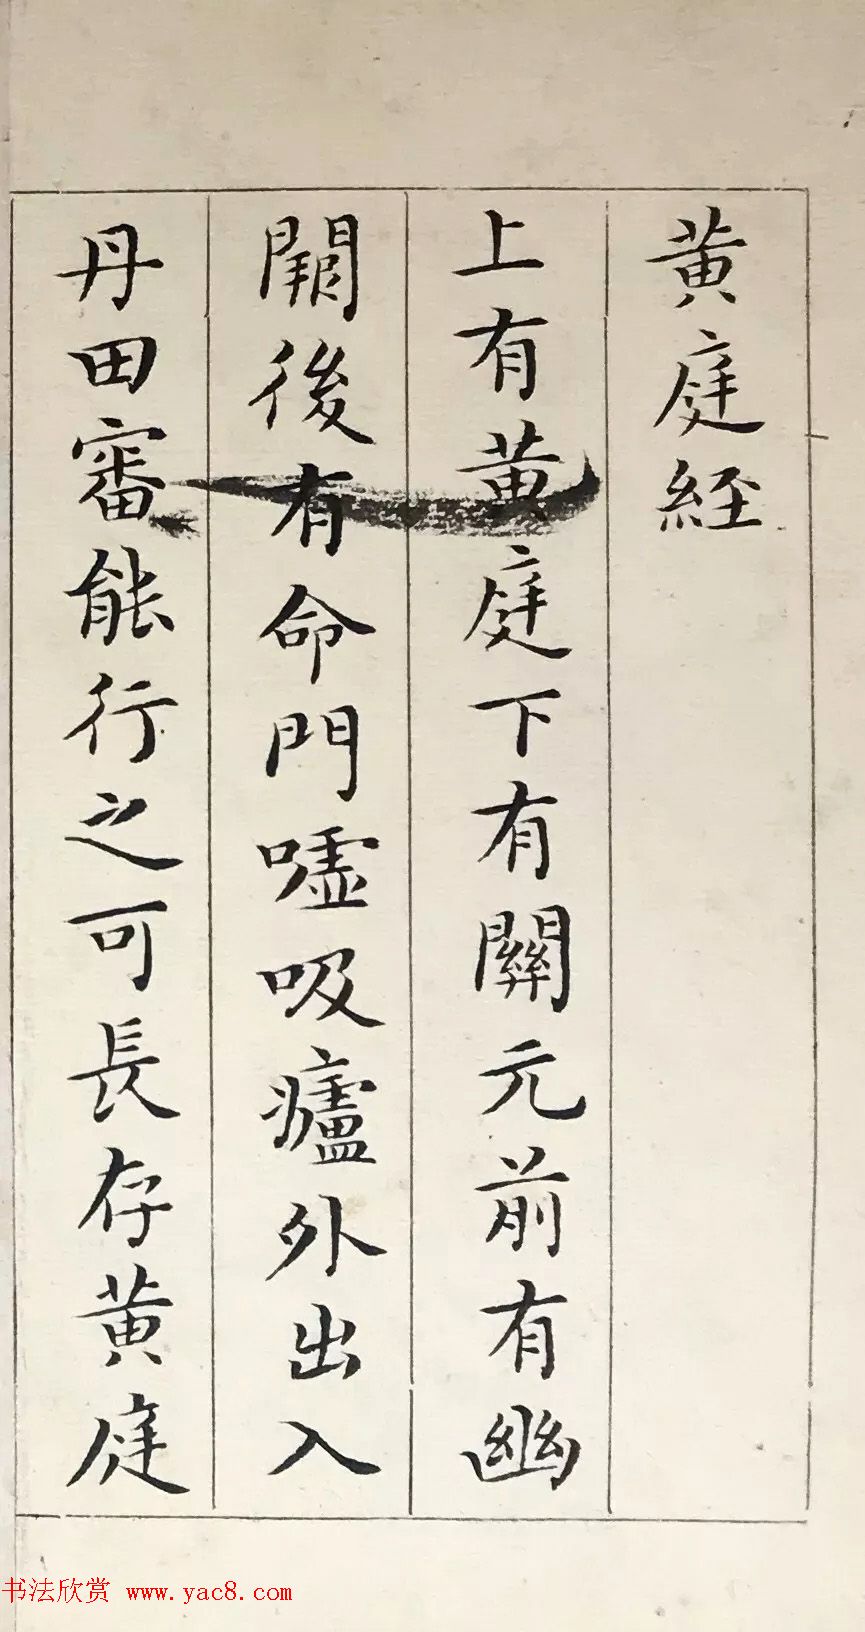 黄庭経
上有黄庭下有關元前有幽
闕後有命門嘘吸廬外出入
丹田審能行之可長存黄庭
书法欣赏 www.yac8.com